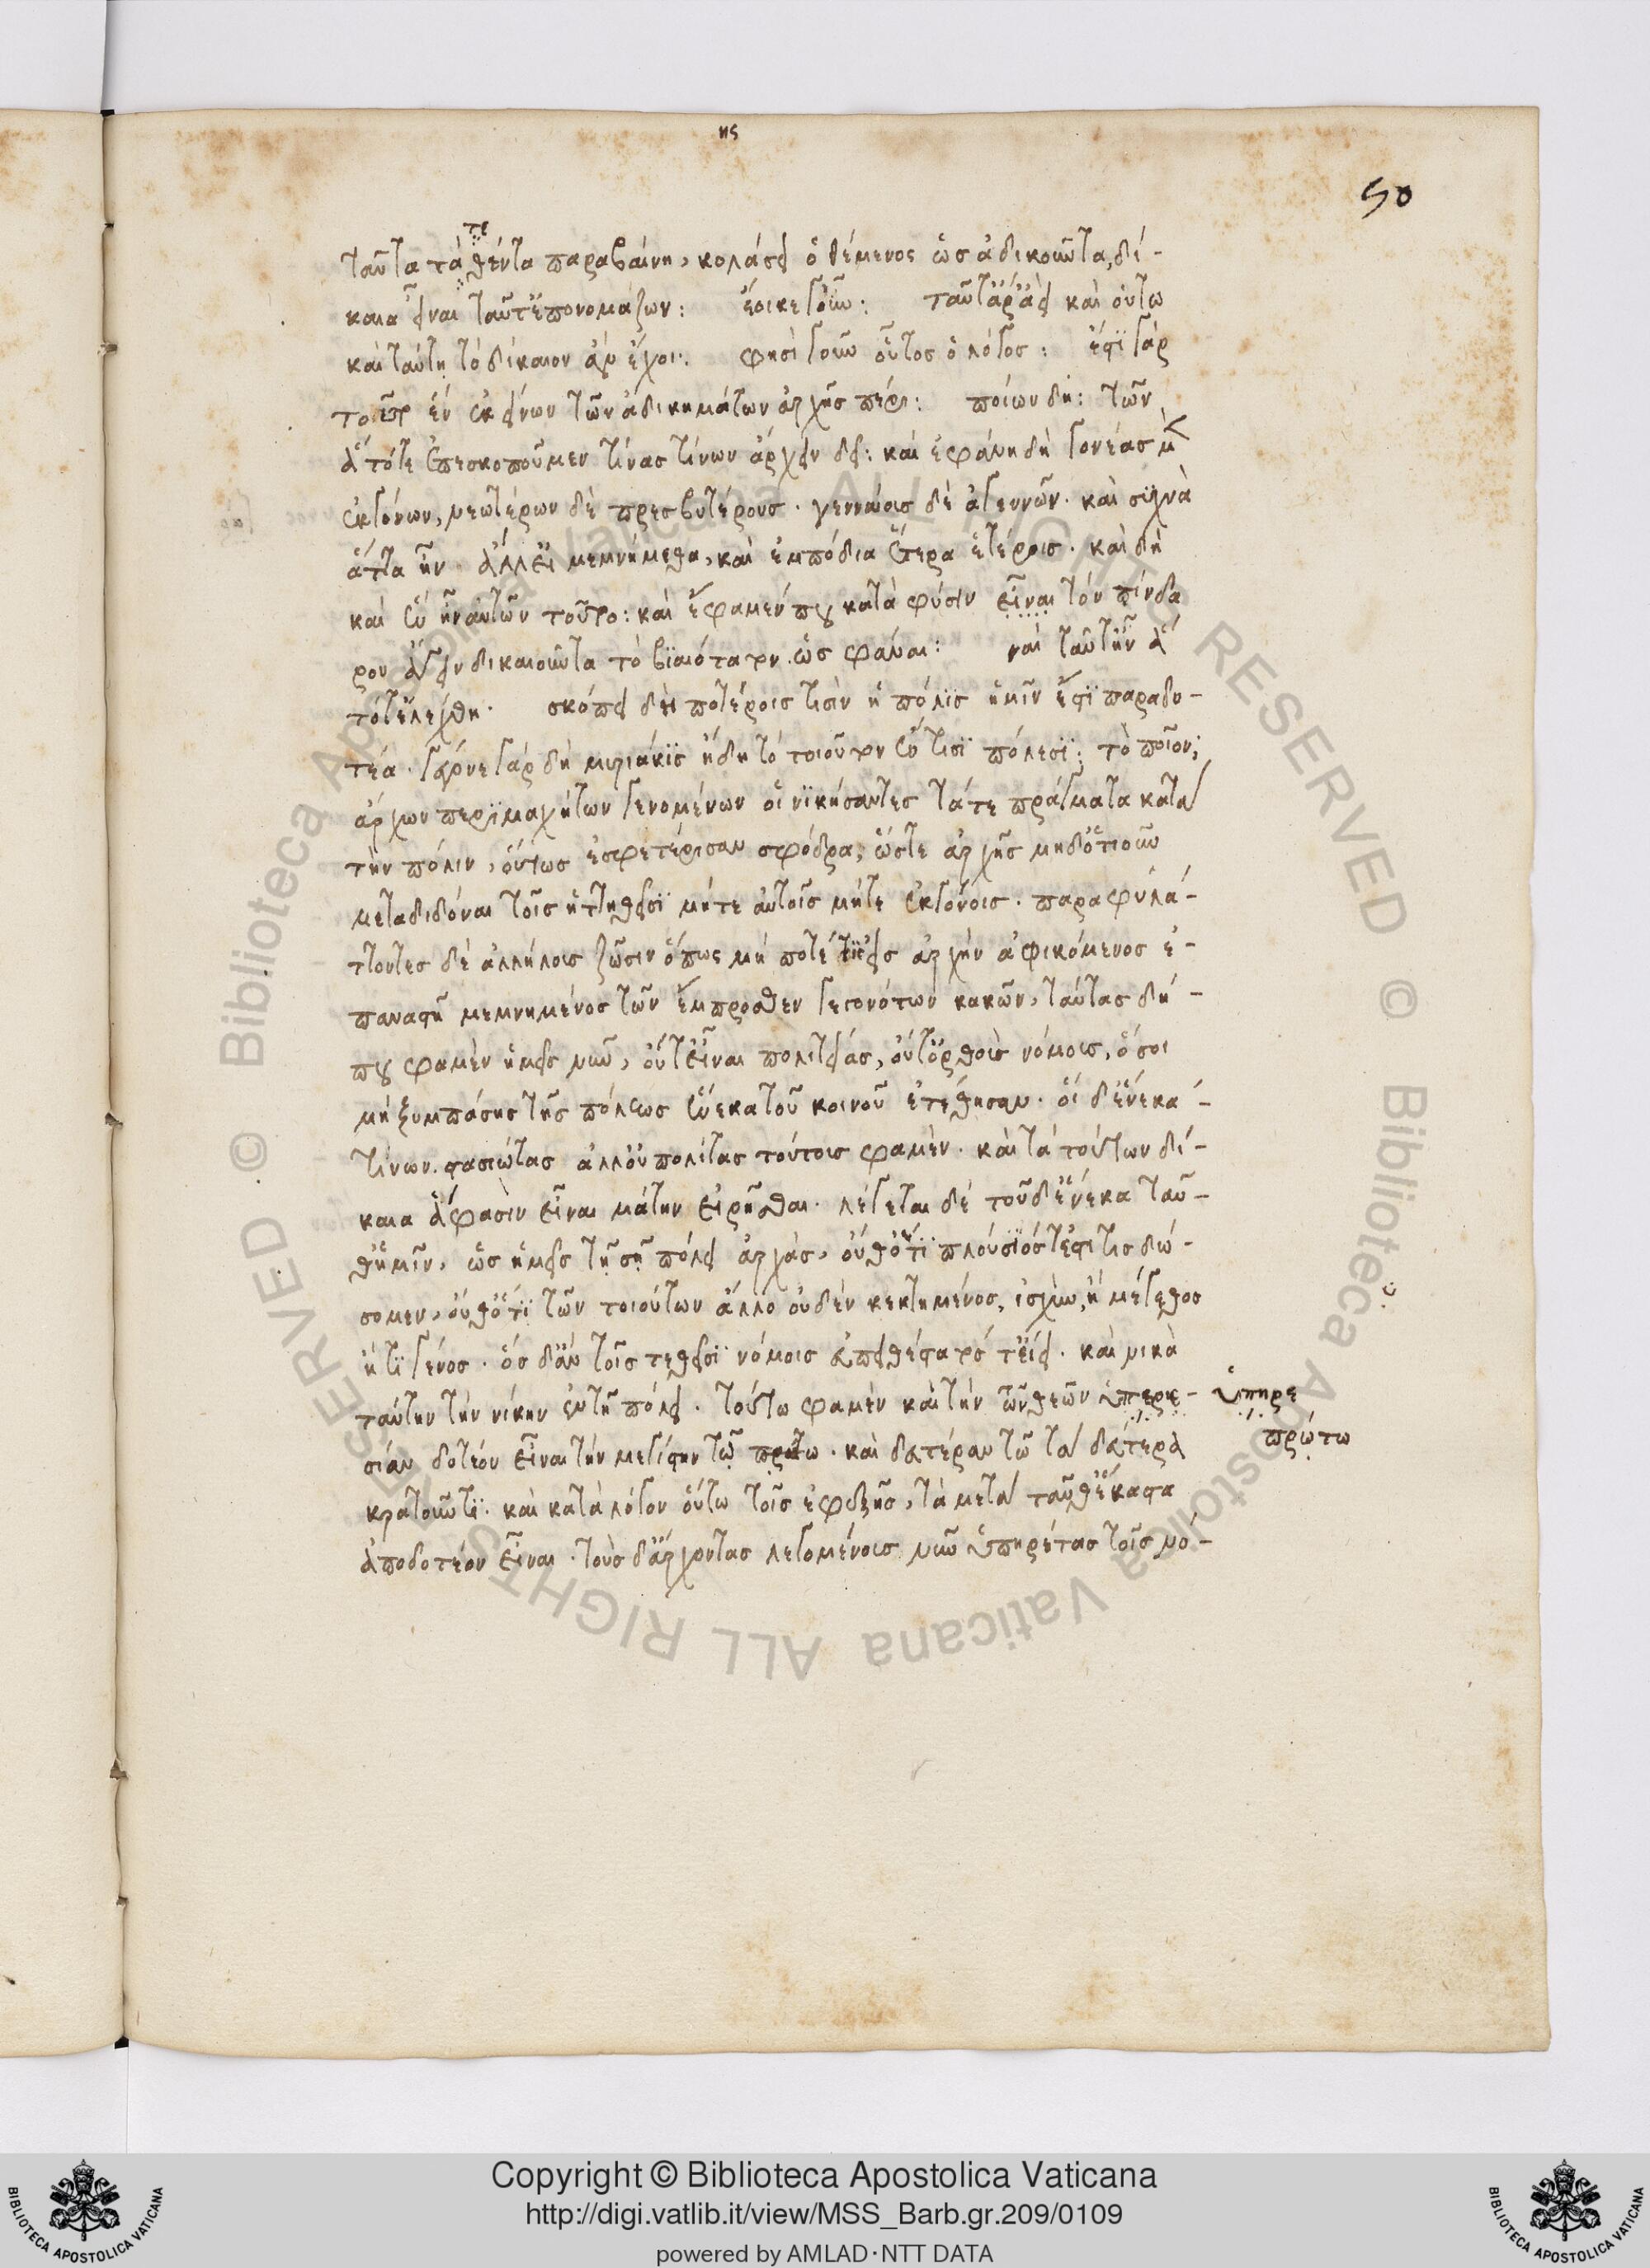 ης
50
τε
ταῦτα τὰ θέντα παραβαίνη, κολάσει ὁ θέμενος ὡς ἀδικοῦντα, δί-
καια εἶναι ταῦτ' ἐπονομάζων: ἔοικε γοῦν: ταῦτ' ἄρ' ἀεὶ καὶ οὕτω
καὶ ταύτη τὸ δίκαιον ἂν ἔχοι: φησὶ γοῦν οὗτος ὁ λόγος: ἔστι γὰρ
τοῦτο ἓν ἐκείνων τῶν ἀδικημάτων ἀρχῆς πέρι: ποίων δή: τῶν
ἃ τότε ἐπεσκοποῦμεν τίνας τίνων ἄρχειν δεῖ: καὶ ἐφάνη δὴ γονέας μὲν
ἐκγόνων, νεωτέρων δὲ πρεσβυτέρους. γενναίοις δὲ ἀγεννῶν. καὶ συχνὰ
ἄττα ἦν ἄλλ' εἰ μεμνήμεθα, καὶ ἐμπόδια ἕτερα ἑτέροις. καὶ δὴ
καὶ ἓν ἦν αὐτῶν τοῦτο: καὶ ἔφαμέν που κατὰ φύσιν εἶναι τὸν πίνδα
ρον ἄγειν δικαιοῦντα τὸ βιαιότατον. ὡς φάναι: ναὶ ταῦτ' ἦν ἃ
τότ' ἐλέχθη. σκόπει δὴ ποτέροις τισὶν ἡ πόλις ἡμῖν ἔστι παραδο-
τέα. γέγονε γὰρ δὴ μυριάκις ἤδη τὸ τοιοῦτον ἔν τισι πόλεσι: τὸ ποῖον;
ἀρχῶν περιμαχήτων γενομένων οἱ νικήσαντες τά τε πράγματα κατὰ
τὴν πόλιν, οὕτως ἐσφετέρισαν σφόδρα, ὥστε ἀρχῆς μηδ' ὁτιοῦν
μεταδιδόναι τοῖς ἡττηθεῖσι μήτε αὐτοῖς μήτε ἐκγόνοις. παραφυλά-
ττοντες δὲ ἀλλήλοις ζῶσιν ὅπως μή ποτέ τις εἰς ἀρχὴν ἀφικόμενος ἐ-
παναστῆ μεμνημένος τῶν ἔμπροσθεν γεγονότων κακῶν, ταύτας δή-
που φαμὲν ἡμεῖς νῦν, οὔτ' εἶναι πολιτείας, οὔτ' ὀρθοὺς νόμους, ὅσοι
μὴ ξυμπάσης τῆς πόλεως ἕνεκα τοῦ κοινοῦ ἐτέθησαν. οἳ δ' ἕνεκά-
τινων. στασιώτας ἀλλ' οὐ πολίτας τούτους φαμὲν. καὶ τὰ τούτων δί-
καια ἅ φασὶν εἶναι μάτην εἰρῆσθαι. λέγεται δὲ τοῦδ' ἕνεκα ταῦ-
θ' ἡμῖν, ὡς ἡμεῖς τῆ σῆ πόλει ἀρχὰς, οὔθ' ὅτι πλούσιός τ' ἐστί τις δώ-
σομεν, οὔθ' ὅτι τῶν τοιούτων ἄλλο οὐδὲν κεκτημένος, ἰσχὺν, ἢ μέγεθος
ἤ τι γένος. ὃς δ' ἂν τοῖς τεθεῖσι νόμοις εὐπειθέστατός τ' εἴει. καὶ νικᾶ
ταύτην τὴν νίκην ἐν τῆ πόλει. τούτω φαμὲν καὶ τὴν τῶν θεῶν ὑπερε-
ὑπηρε
σίαν δοτέον εἶναι τὴν μεγίστην τῶ πρώτω. καὶ δευτέραν τῶ τὰ δεύτερα
πρώτω
κρατοῦντι. καὶ κατὰ λόγον οὕτω τοῖς ἐφεξῆς, τὰ μετὰ ταῦθ' ἕκαστα
ἀποδοτέον εἶναι. τοὺς δ' ἄρχοντας λεγομένους νῦν ὑπηρέτας τοῖς νό-
Copyright © Biblioteca Apostolica Vaticana
http://digi.vatlib.it/view/MSS_Barb.gr.209/0109
powered by AMLAD·NTT DATA